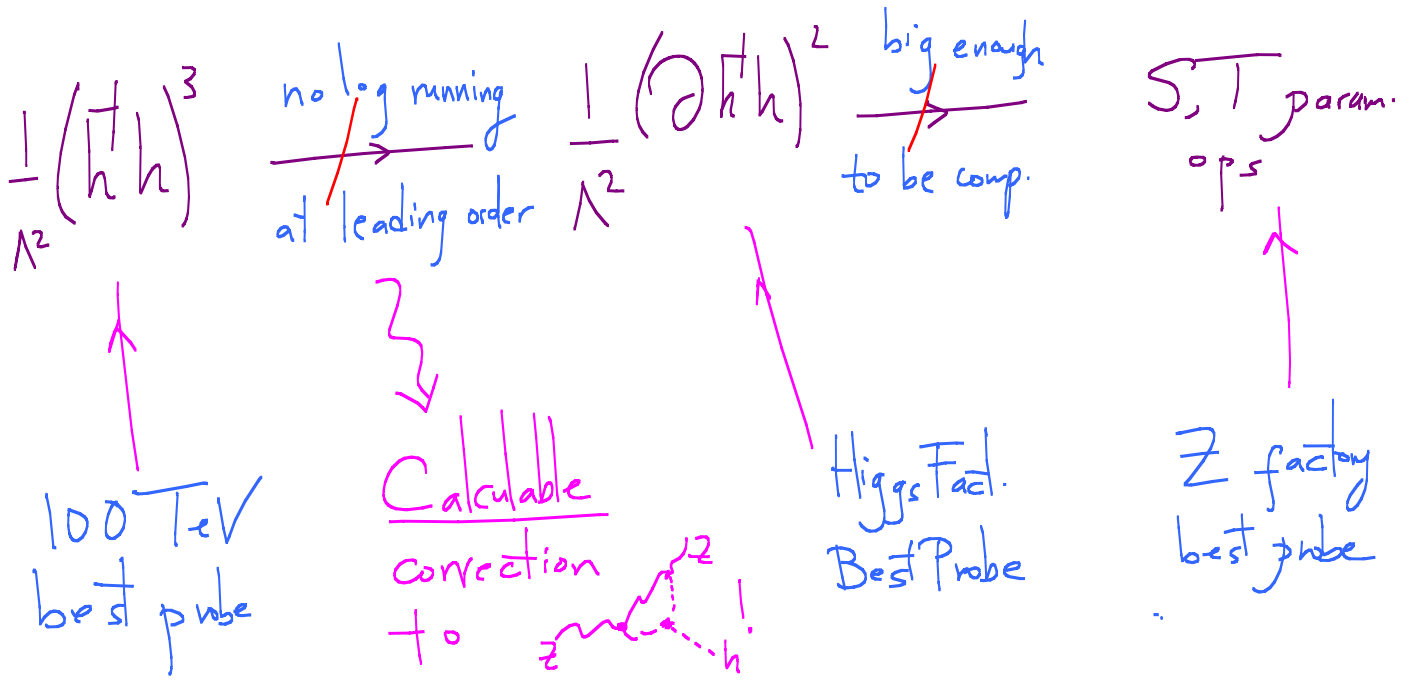 1/Λ² (h†h)³
no log running
at leading order
1/Λ² (∂h†h)²
big enough
to be comp.
S,T param.
ops
100 TeV
best probe
Calculable
correction
to
Z
Z
h
!
Higgs Fact.
Best Probe
Z factory
best probe